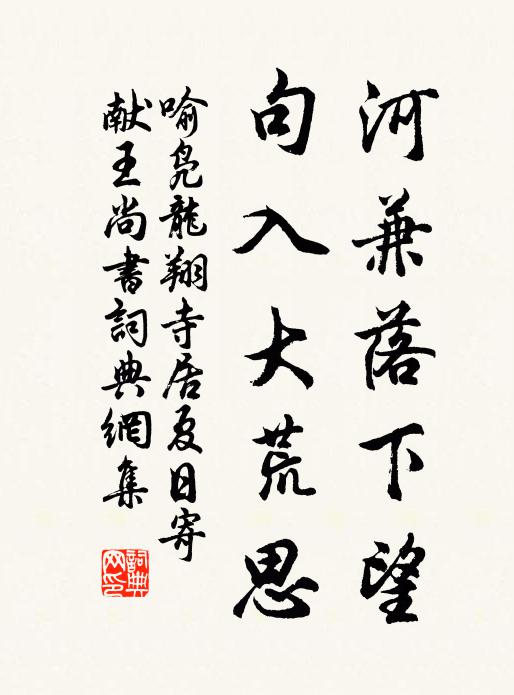 河兼落下望
句入大荒思
喻凫龍翔寺居夏日寄
献王尚書詞典網集
詞典
网印